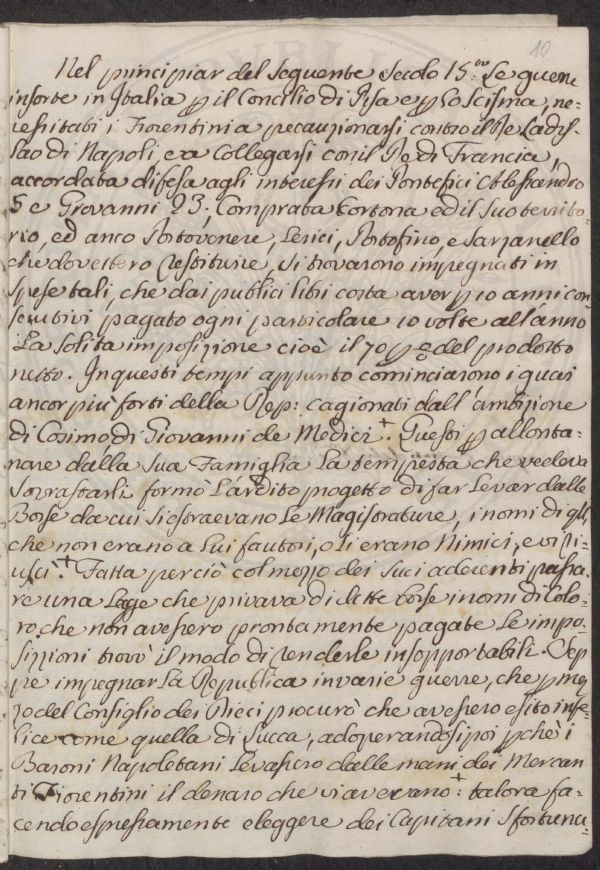 10
Nel principiar del Seguente Secolo 15.mo Le guerre
insorte in Italia p il Concilio di Pisa e p Lo Scisma, ne=
cessitati i Fiorentini a precauzionarsi contro il Re Ladis=
lao di Napoli, e a Collegarsi con il Re di Francia,
accordata difesa agli interessi dei Pontefici Alessandro
5 e Giovanni 23; Comprata Cortona ed il suo territo=
rio, ed anco Portovenere, Lerici, Portofino, e Sarzanello
che dovettero restituire, si trovarono impegnati in
spese tali, che dai publici libri costa aver p 10 anni con
secutivi pagato ogni particolare 10 volte all'anno
La solita imposizione cioè il 70 p % del prodotto
netto. In questi tempi appunto cominciarono i guai
ancor più forti della Rep: cagionati dall'ambizione
di Cosimo di Giovanni de Medici + . Questi p allonta=
nare dalla sua Famiglia La tempesta che vedeva
sovrastarli formò L'ardito progetto di far Levar dalle
Borse da cui si estraevano Le Magistrature, i nomi di qli,
che non erano a Lui fautori, o li erano Nimici, e vi ri=
uscì. + Fatta perciò col mezzo dei suoi aderenti passa=
re una Legge che privava di dette borse i nomi di Colo=
ro, che non avessero prontamente pagate Le impo=
sizzioni trovò il modo di renderle insopportabili. Sep=
pe impegnar La Republica in varie guerre, che p mez
zo del Consiglio dei Dieci procurò che avessero esito infe=
lice come quella di Lucca, adoperandosi poi pchè i
Baroni Napoletani Levassero dalle mani dei Mercan
ti Fiorentini il denaro che vi avevano + : talora fa=
cendo espressamente eleggere dei Capitani Sfortuna=